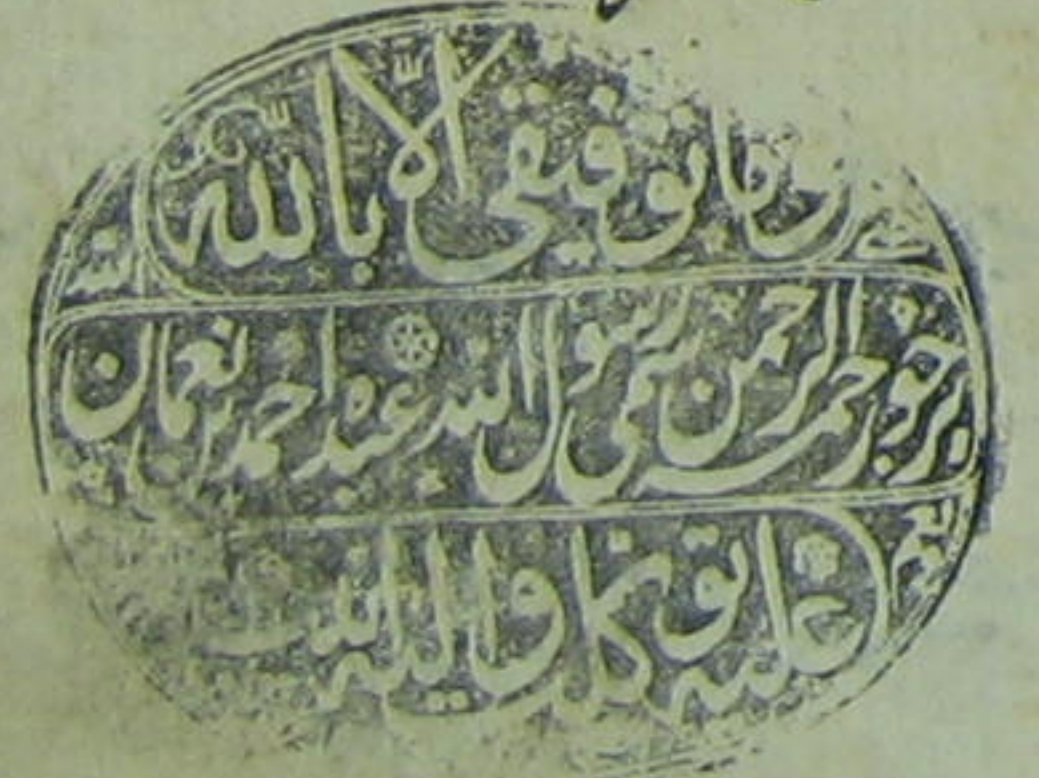 وما توفيقي الا بالله
يرجو رحمة الرحمن سمي رسول الله عبده احمد نعمان
عليه توكلت واليه انيب